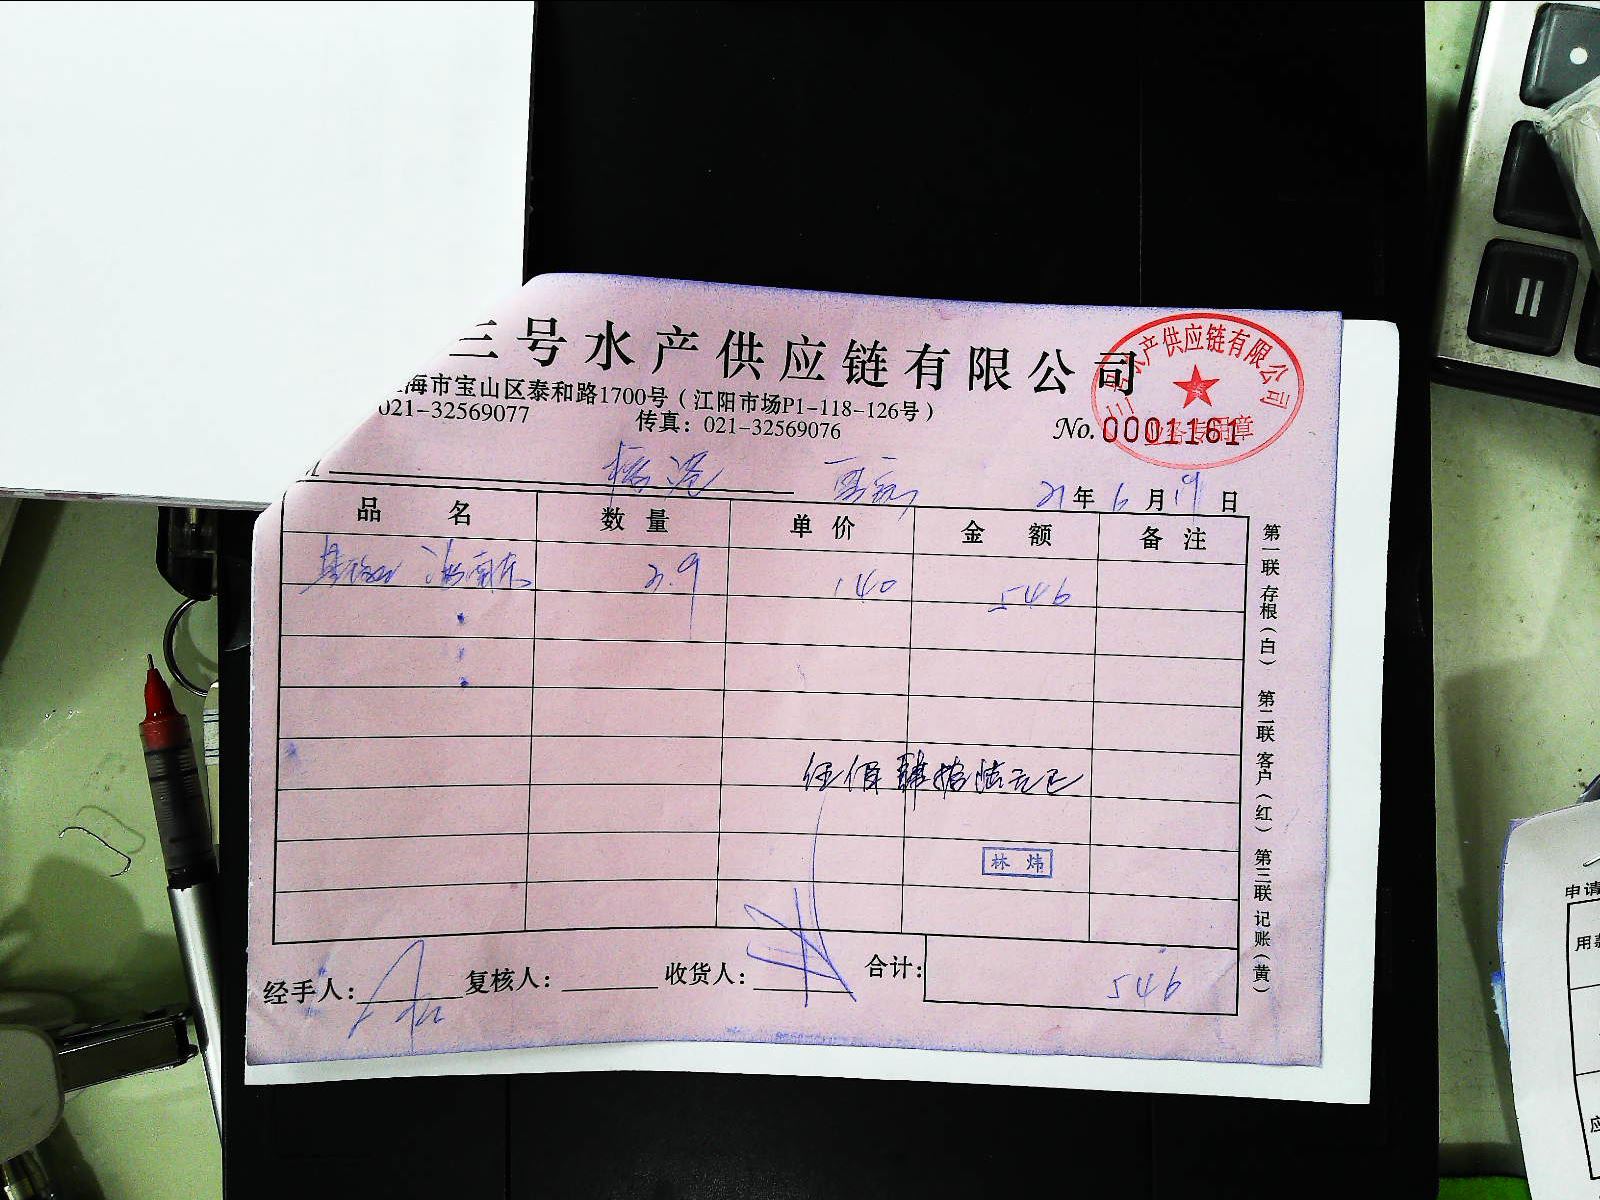 三号水产供应链有限公司
海市宝山区泰和路1700号（江阳市场P1-118-126号）
021-32569077 传真：021-32569076
No. 0001161
三号水产供应链有限公司
业务专用章
21年6月19日
品名 数量 单价 金额 备注
3.9 140 546
伍佰肆拾陆元正
林炜
经手人： 复核人： 收货人： 合计： 546
第一联 存根（白） 第二联 客户（红） 第三联 记账（黄）
申请
用款
应